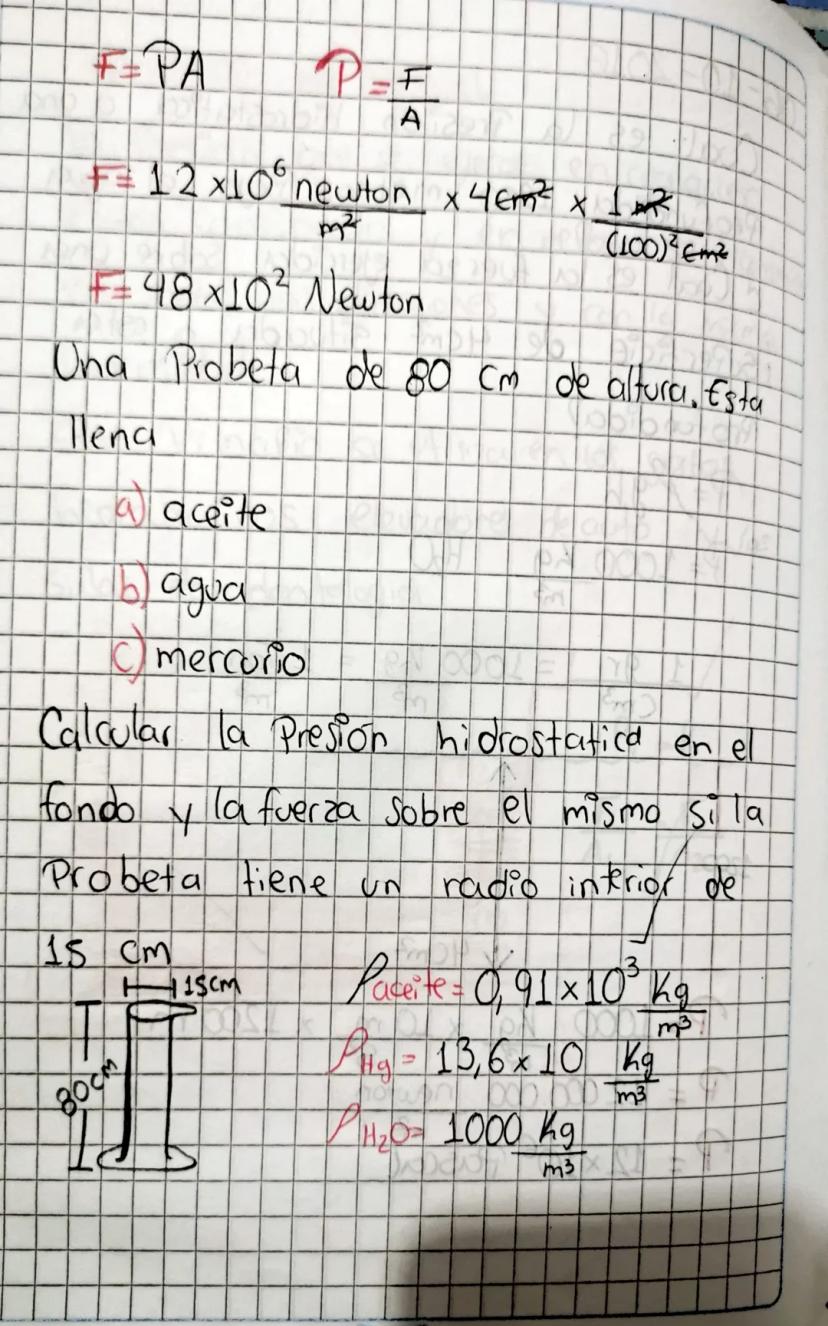 F= PA P = F/A
F= 12 x10⁶ newton/m² x 4cm² x 1 m²/(100)² cm²
F= 48 x10² Newton
Una Probeta de 80 cm de altura. Esta
llena
a) aceite
b) agua
c) mercurio
Calcular la Presion hidrostatica en el
fondo y la fuerza sobre el mismo si la
Probeta tiene un radio interior de
15 cm
15cm
80cm
ρaceite= 0,91x10³ Kg/m³
ρHg= 13,6x10 Kg/m³
ρH₂O= 1000 Kg/m³